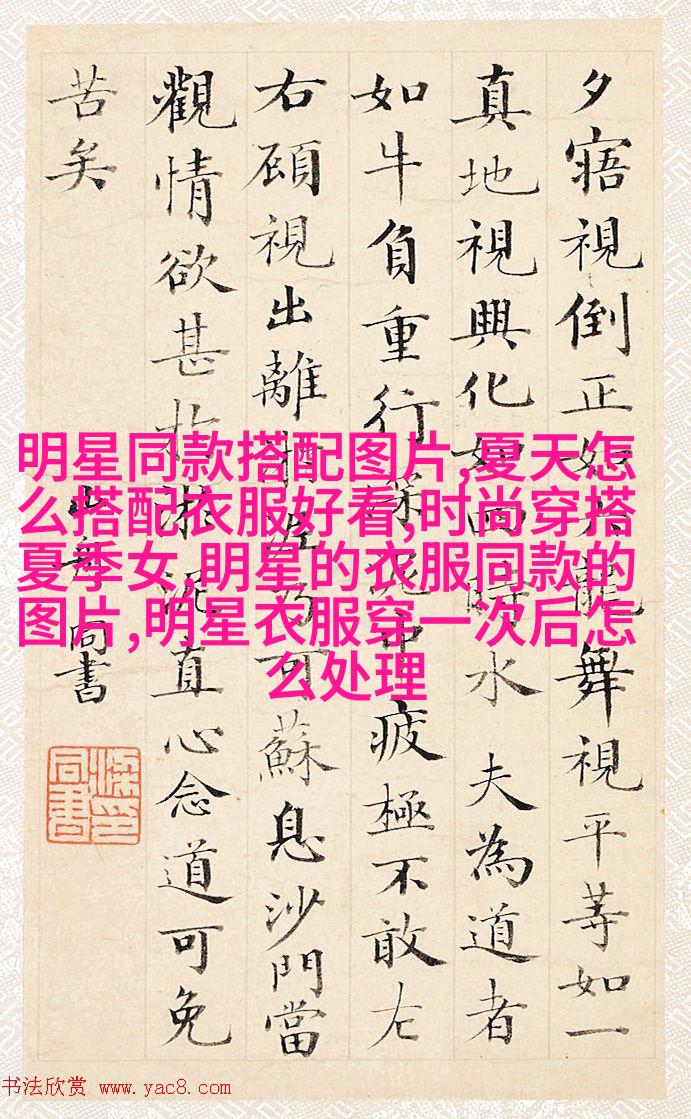 夕寤視倒正如六龍舞視平等如一
真地視興化如四時 夫為道者
如牛負重行深泥中疲極不敢左
右顧視出離淤泥乃可蘇息沙門當
觀情欲甚於淤泥直心念道可免
苦矣
山舟同書
明星同款搭配图片,夏天怎
么搭配衣服好看,时尚穿搭
夏季女,明星的衣服同款的
图片,明星衣服穿一次后怎
么处理
书法欣赏 www.yac8.com